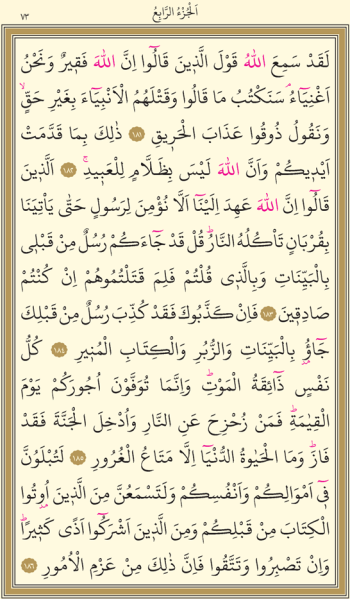 اَلْجُزْءُ الرَّابِعُ
٧٣
لَقَدْ سَمِعَ اللّٰهُ قَوْلَ الَّذ۪ينَ قَالُٓوا اِنَّ اللّٰهَ فَق۪يرٌ وَنَحْنُ
اَغْنِيَٓاءُۢ سَنَكْتُبُ مَا قَالُوا وَقَتْلَهُمُ الْاَنْبِيَٓاءَ بِغَيْرِ حَقٍّۙ
وَنَقُولُ ذُوقُوا عَذَابَ الْحَر۪يقِ ﴿١٨١﴾ ذٰلِكَ بِمَا قَدَّمَتْ
اَيْد۪يكُمْ وَاَنَّ اللّٰهَ لَيْسَ بِظَلَّامٍ لِلْعَب۪يدِۚ ﴿١٨٢﴾ اَلَّذ۪ينَ
قَالُٓوا اِنَّ اللّٰهَ عَهِدَ اِلَيْنَٓا اَلَّا نُؤْمِنَ لِرَسُولٍ حَتّٰى يَأْتِيَنَا
بِقُرْبَانٍ تَأْكُلُهُ النَّارُۜ قُلْ قَدْ جَٓاءَكُمْ رُسُلٌ مِنْ قَبْل۪ي
بِالْبَيِّنَاتِ وَبِالَّذ۪ي قُلْتُمْ فَلِمَ قَتَلْتُمُوهُمْ اِنْ كُنْتُمْ
صَادِق۪ينَ ﴿١٨٣﴾ فَاِنْ كَذَّبُوكَ فَقَدْ كُذِّبَ رُسُلٌ مِنْ قَبْلِكَ
جَٓاؤُ۫ بِالْبَيِّنَاتِ وَالزُّبُرِ وَالْكِتَابِ الْمُن۪يرِ ﴿١٨٤﴾ كُلُّ
نَفْسٍ ذَٓائِقَةُ الْمَوْتِۜ وَاِنَّمَا تُوَفَّوْنَ اُجُورَكُمْ يَوْمَ
الْقِيٰمَةِۜ فَمَنْ زُحْزِحَ عَنِ النَّارِ وَاُدْخِلَ الْجَنَّةَ فَقَدْ
فَازَۜ وَمَا الْحَيٰوةُ الدُّنْيَٓا اِلَّا مَتَاعُ الْغُرُورِ ﴿١٨٥﴾ لَتُبْلَوُنَّ
ف۪ٓي اَمْوَالِكُمْ وَاَنْفُسِكُمْ وَلَتَسْمَعُنَّ مِنَ الَّذ۪ينَ اُو۫تُوا
الْكِتَابَ مِنْ قَبْلِكُمْ وَمِنَ الَّذ۪ينَ اَشْرَكُٓوا اَذًى كَث۪يرًاۜ
وَاِنْ تَصْبِرُوا وَتَتَّقُوا فَاِنَّ ذٰلِكَ مِنْ عَزْمِ الْاُمُورِ ﴿١٨٦﴾